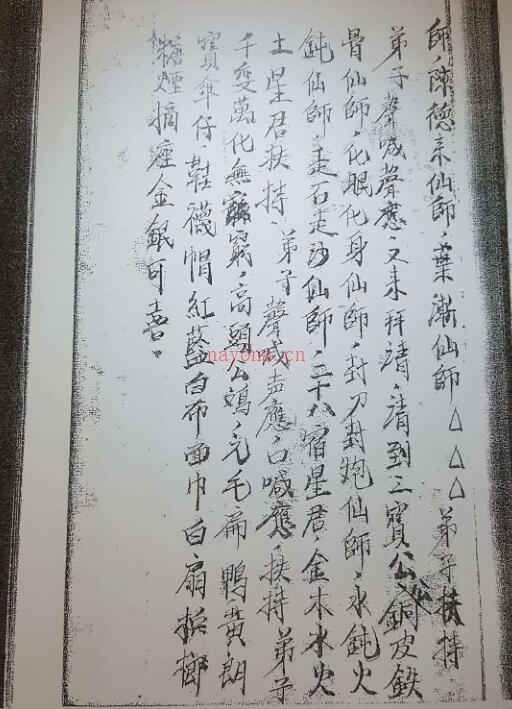 師、陳德未仙師、葉漸仙師△△△弟子扶持
弟子聲喊聲應、又未拜請、清到三寶公公銅皮鉄
骨仙師、化眼化身仙師、封刀封炮仙師、水鈍火
鈍仙師、走石走沙仙師、二十八宿星君、金木水火
土星君扶持、弟子聲喊声應、口喊應、扶持弟子
千变萬化無窮、高頭公鷄、元毛扁鴨、黄朗
寳傘仔、鞋襪帽紅藍白布面巾白扇
糖煙摘座金銀可喜。
nayona.cn